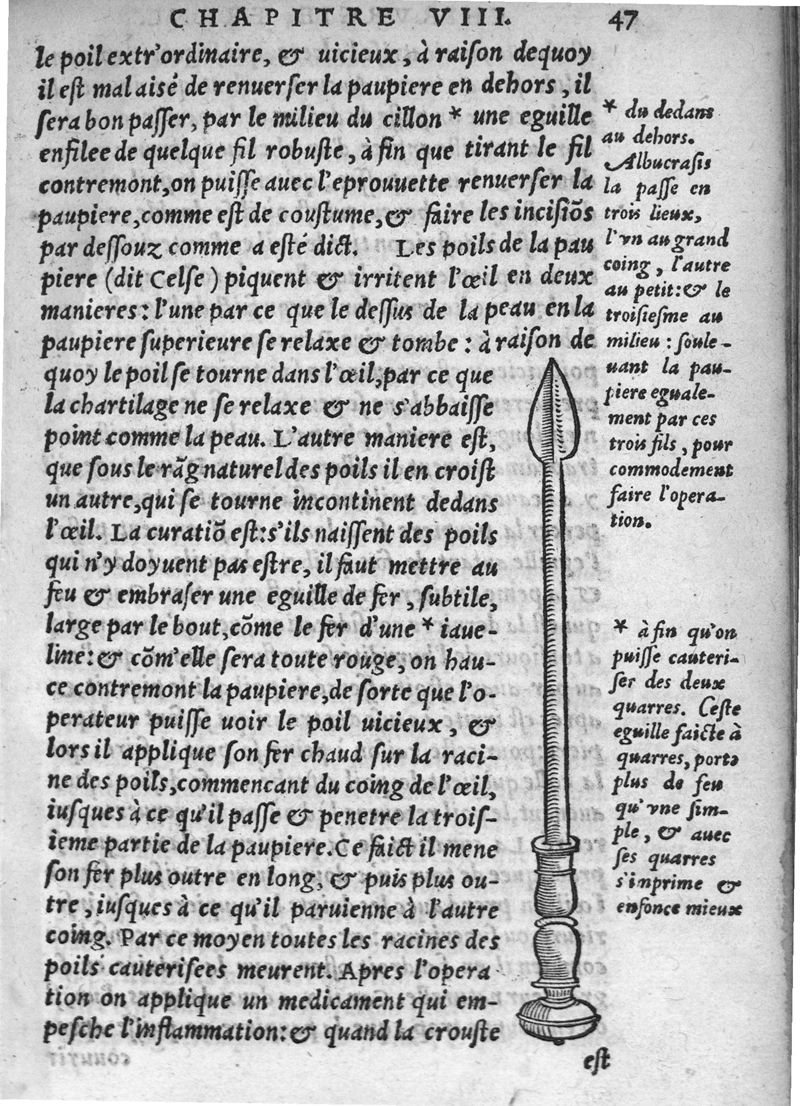 CHAPITRE VIII. 47
le poil extr'ordinaire, & uicieux, à raiſon dequoy
il eſt mal aisé de renuerſer la paupiere en dehors, il
ſera bon paſſer, par le milieu du cillon * une eguille
enfilee de quelque fil robuſte, à fin que tirant le fil
contremont, on puiſſe auec l'eprouuette renuerſer la
paupiere, comme eſt de couſtume, & faire les inciſiõs
par deſſouz comme a eſté dict. Les poils de la pau
piere (dit Celſe) piquent & irritent l'œil en deux
manieres: l'une par ce que le deſſus de la peau en la
paupiere ſuperieure ſe relaxe & tombe: à raiſon de
quoy le poil ſe tourne dans l'œil, par ce que
la chartilage ne ſe relaxe & ne s'abbaiſſe
point comme la peau. L'autre maniere eſt,
que ſous le rãg naturel des poils il en croiſt
un autre, qui ſe tourne incontinent dedans
l'œil. La curatiõ eſt: s'ils naiſſent des poils
qui n'y doyuent pas eſtre, il faut mettre au
feu & embraſer une eguille de fer, ſubtile,
large par le bout, cõme le fer d'une * iaue-
line: & cõm'elle ſera toute rouge, on hau-
ce contremont la paupiere, de ſorte que l'o-
perateur puiſſe uoir le poil uicieux, &
lors il applique ſon fer chaud ſur la raci-
ne des poils, commencant du coing de l'œil,
iuſques à ce qu'il paſſe & penetre la troiſ-
ieme partie de la paupiere. Ce faict il mene
ſon fer plus outre en long, & puis plus ou-
tre, iuſques à ce qu'il paruienne à l'autre
coing. Par ce moyen toutes les racines des
poils cauteriſees meurent. Apres l'opera
tion on applique un medicament qui em-
peſche l'inflammation: & quand la crouſte
eſt
* du dedans
au dehors.
Albucraſis
la paſſe en
trois lieux,
l'vn au grand
coing, l'autre
au petit: & le
troiſieſme au
milieu: ſoule-
uant la pau-
piere eguale-
ment par ces
trois fils, pour
commodement
faire l'opera-
tion.
* à fin qu'on
puiſſe cauteri-
ſer des deux
quarres. Ceſte
eguille faicte à
quarres, porte
plus de feu
qu'vne ſim-
ple, & auec
ſes quarres
s'inprime &
enfonce mieux